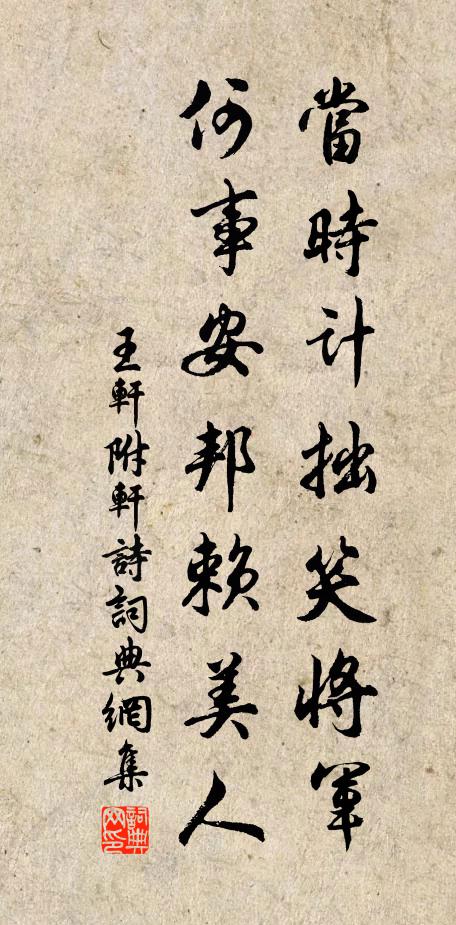 當時計拙笑將軍
何事安邦賴美人
王軒附軒詩詞典網集
詞典網印